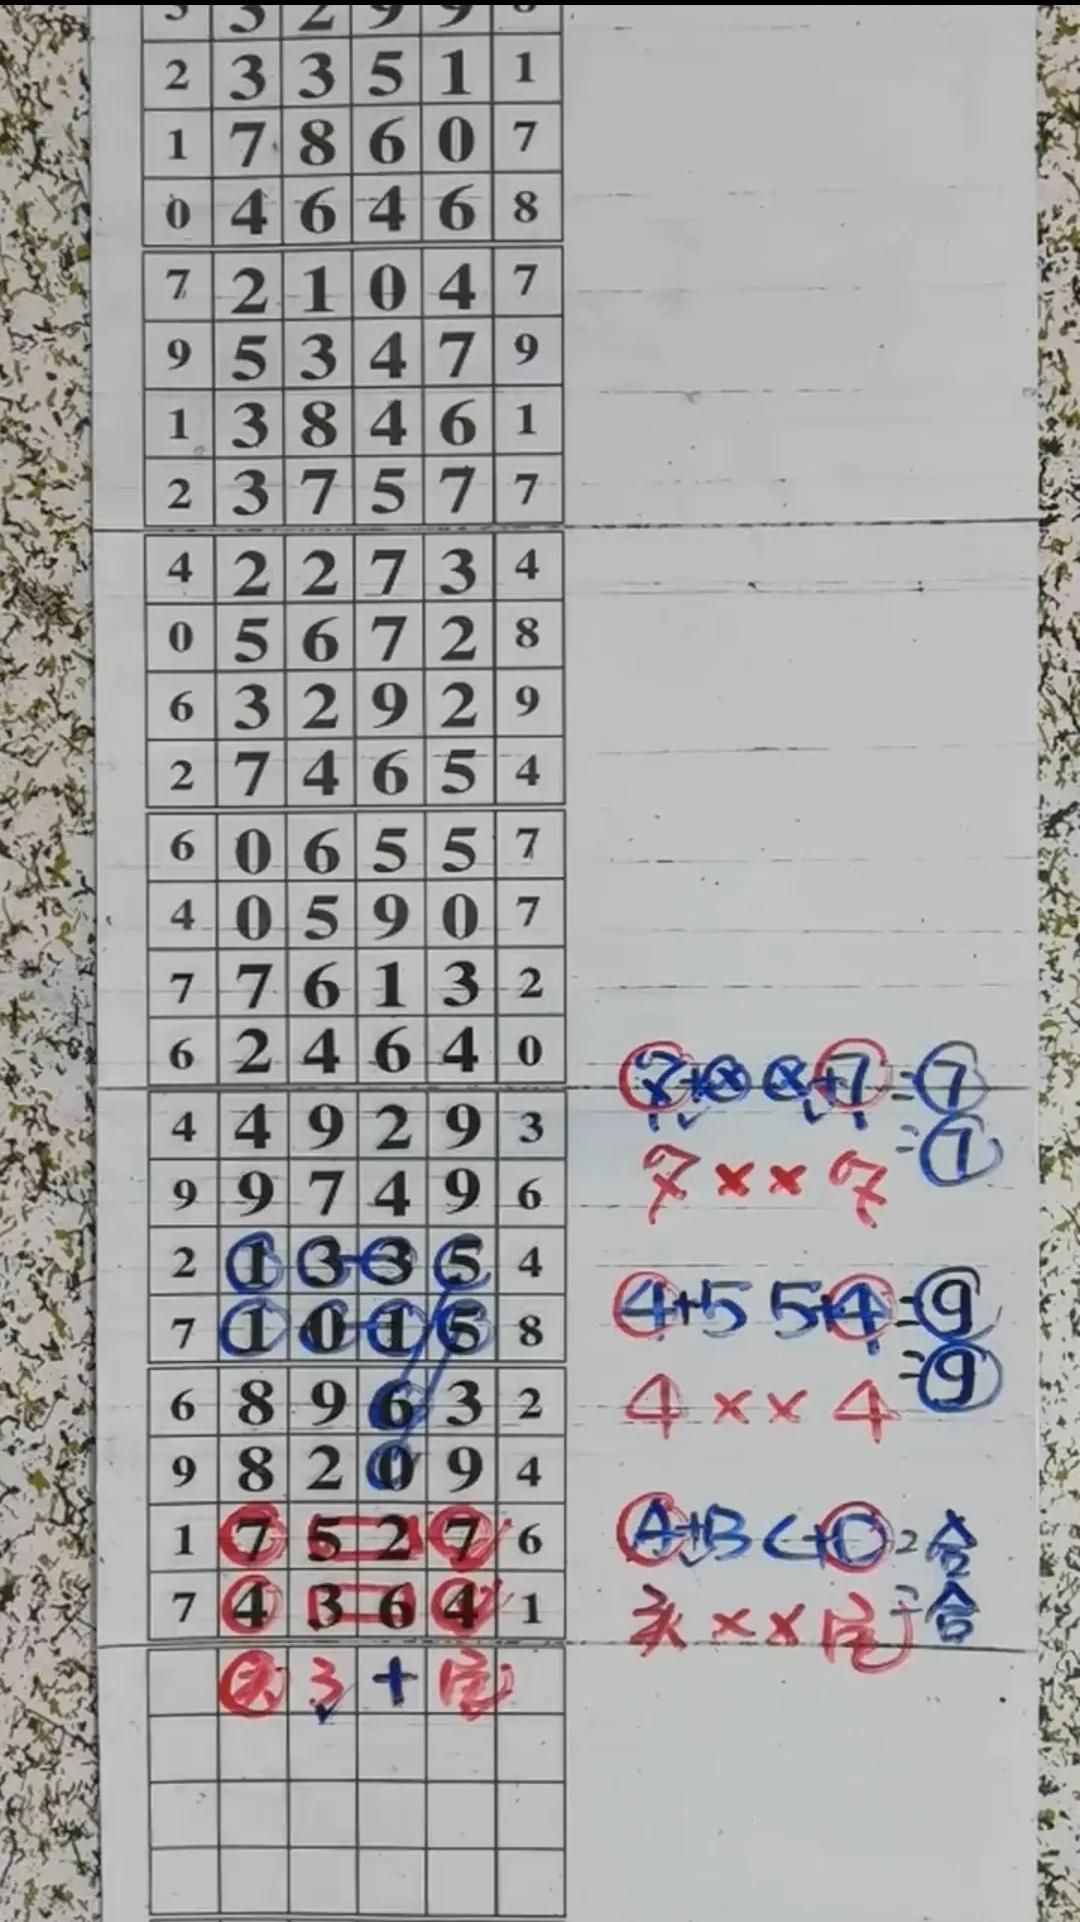 2 3 3 5 1 1
1 7 8 6 0 7
0 4 6 4 6 8
7 2 1 0 4 7
9 5 3 4 7 9
1 3 8 4 6 1
2 3 7 5 7 7
4 2 2 7 3 4
0 5 6 7 2 8
6 3 2 9 2 9
2 7 4 6 5 4
6 0 6 5 5 7
4 0 5 9 0 7
7 7 6 1 3 2
6 2 4 6 4 0
4 4 9 2 9 3
9 9 7 4 9 6
2 1 3 3 5 4
7 1 0 1 5 8
6 8 9 6 3 2
9 8 2 0 9 4
1 7 5 2 7 6
7 4 3 6 4 1
3 +
=7
7 × × 7
4+5 5+4=9
=9
4 × × 4
A+B C+D=合
头 × × =合